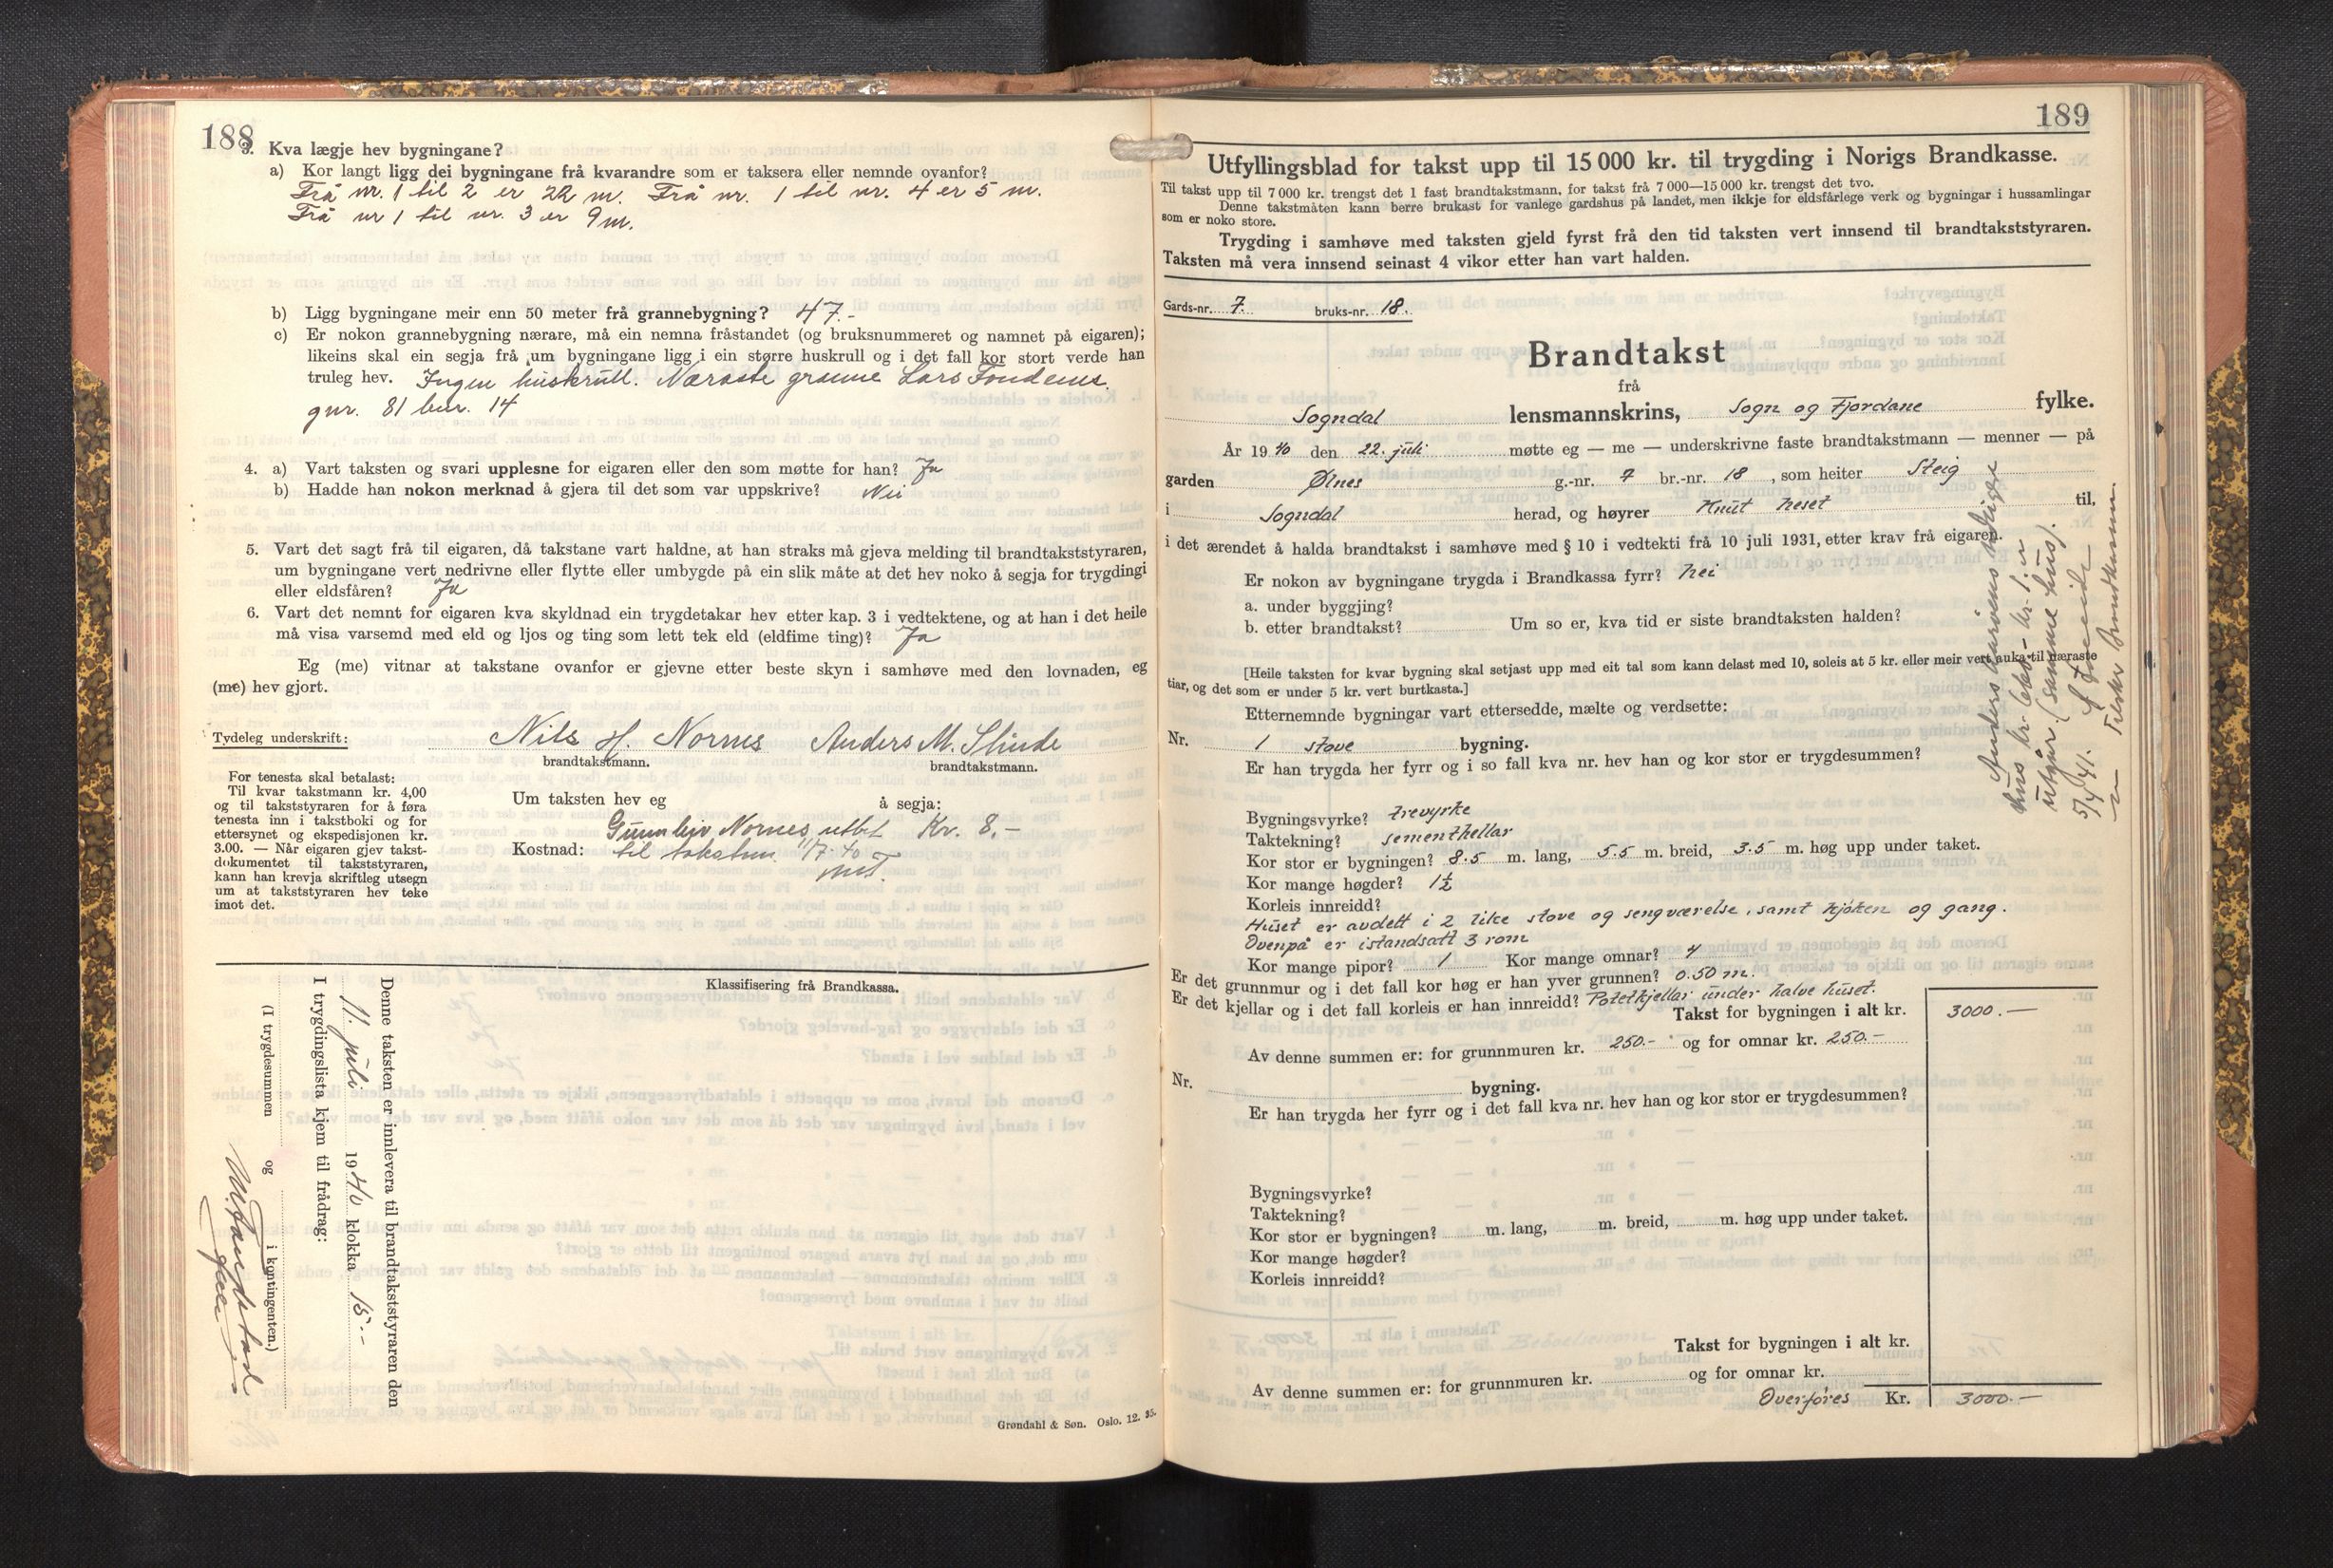 188
3. Kva lægje hev bygningane?
a) Kor langt ligg dei bygningane frå kvarandre som er taksera eller nemnde ovanfor?
Frå nr. 1 til 2 er 22 m. Frå nr. 1 til nr. 4 er 5 m.
Frå nr 1 til nr. 3 er 9 m.
b) Ligg bygningane meir enn 50 meter frå grannebygning? 47.-
c) Er nokon grannebygning nærare, må ein nemna fråstandet (og bruksnummeret og namnet på eigaren);
likeins skal ein segja frå um bygningane ligg i ein større huskrull og i det fall kor stort verde han
truleg hev. Ingen huskrull. Næraste granne Lars Fondenes.
gnr. 81 bnr. 14
4. a) Vart taksten og svari upplesne for eigaren eller den som møtte for han? Ja
b) Hadde han nokon merknad å gjera til det som var uppskrive? Nei
5. Vart det sagt frå til eigaren, då takstane vart haldne, at han straks må gjeva melding til brandtakststyraren,
um bygningane vert nedrivne eller flytte eller umbygde på ein slik måte at det hev noko å segja for trygdingi
eller eldsfåren? Ja
6. Vart det nemnt for eigaren kva skyldnad ein trygdetakar hev etter kap. 3 i vedtektene, og at han i det heile
må visa varsemd med eld og ljos og ting som lett tek eld (eldfime ting)? Ja
Eg (me) vitnar at takstane ovanfor er gjevne etter beste skyn i samhøve med den lovnaden, eg
(me) hev gjort.
Tydeleg underskrift: Nils H. Nornes Anders M. Slinde
brandtakstmann. brandtakstmann.
For tenesta skal betalast:
Til kvar takstmann kr. 4,00
og til takststyraren for å føra
tenesta inn i takstboki og for
ettersynet og ekspedisjonen kr.
3.00. — Når eigaren gjev takst-
dokumentet til takststyraren,
kann han krevja skriftleg utsegn
um at takststyraren hev teke
imot det.
Um taksten hev eg å segja:
Gunnleiv Nornes, utbt Kr. 8,-
Kostnad: til takstm. 11/7-40
Klassifisering frå Brandkassa.
Denne taksten er innlevera til brandtakststyraren den
11. juli 1940 klokka 15.-
I trygdingslista kjem til frådrag:
(I trygdesummen og i kontingenten.)
Grøndahl & Søn. Oslo. 12. 35.
189
Utfyllingsblad for takst upp til 15 000 kr. til trygding i Norigs Brandkasse.
Til takst upp til 7 000 kr. trengst det 1 fast brandtakstmann, for takst frå 7 000—15 000 kr. trengst det tvo.
Denne takstmåten kann berre brukast for vanlege gardshus på landet, men ikkje for eldsfårlege verk og bygningar i hussamlingar
som er noko store.
Trygding i samhøve med taksten gjeld fyrst frå den tid taksten vert innsend til brandtakststyraren.
Taksten må vera innsend seinast 4 vikor etter han vart halden.
Gards-nr. 7. bruks-nr. 18.
Brandtakst
frå
Sogndal lensmannskrins, Sogn og Fjordane fylke.
År 1940 den 22. juli møtte eg — me — underskrivne faste brandtakstmann — menner — på
garden Ølnes g.-nr. 7 br.-nr. 18, som heiter Steig
i Sogndal herad, og høyrer Knut Neset til,
i det ærendet å halda brandtakst i samhøve med § 10 i vedtekti frå 10 juli 1931, etter krav frå eigaren.
Er nokon av bygningane trygda i Brandkassa fyrr? nei
a. under byggjing?
b. etter brandtakst? Um so er, kva tid er siste brandtaksten halden?
[Heile taksten for kvar bygning skal setjast upp med eit tal som kann delast med 10, soleis at 5 kr. eller meir vert auka til næraste
tiar, og det som er under 5 kr. vert burtkasta.]
Etternemnde bygningar vart ettersedde, mælte og verdsette:
Nr. 1 stove bygning.
Er han trygda her fyrr og i so fall kva nr. hev han og kor stor er trygdesummen?
Bygningsvyrke? trevyrke
Taktekning? sementhellar
Kor stor er bygningen? 8.5 m. lang, 5.5 m. breid, 3.5 m. høg upp under taket.
Kor mange høgder? 1½
Korleis innreidd?
Huset er avdelt i 2 like stove og sengværelse, samt kjøken og gang.
Ovenpå er istandsatt 3 rom
Kor mange pipor? 1 Kor mange omnar? 4
Er det grunnmur og i det fall kor høg er han yver grunnen? 0.50 m.
Er det kjellar og i det fall korleis er han innreidd? Potetkjellar under halve huset.
Takst for bygningen i alt kr. 3000.—
Av denne summen er: for grunnmuren kr. 250.- og for omnar kr. 250.-
Nr. bygning.
Er han trygda her fyrr og i det fall kva nr. hev han og kor stor er trygdesummen?
Bygningsvyrke?
Taktekning?
Kor stor er bygningen? m. lang, m. breid, m. høg upp under taket.
Kor mange høgder?
Korleis innreidd?
Takst for bygningen i alt kr.
Av denne summen er: for grunnmuren kr. og for omnar kr.
Overføres Kr. 3000.—
utgår. (samme hus).
5/4 41.